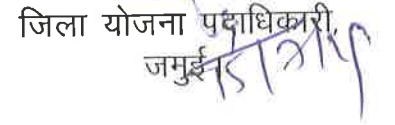 जिला योजना पदाधिकारी,
जमुई।